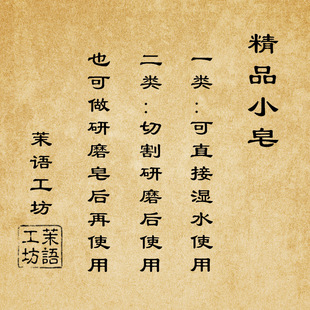 精品小皂
一类：可直接湿水使用
二类：切割研磨后使用
也可做研磨皂后再使用
茉语工坊
茉語工坊